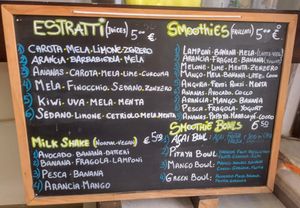 ESTRATTI (JUICES) 5,00 €
1) CAROTA-MELA-LIMONE-ZENZERO
2) ARANCIA-BARBABIETOLA-MELA
3) ANANAS-CAROTA-MELA-LIME-CURCUMA
4) MELA-FINOCCHIO-SEDANO-ZENZERO
5) KIWI-UVA-MELA-MENTA
6) SEDANO-LIMONE-CETRIOLO-MELA-MENTA
MILK SHAKE (NORMAL-VEGAN)
1) AVOCADO-BANANA-DATTERI
2) BANANA-FRAGOLA-LAMPONI
3) PESCA-BANANA
4) ARANCIA-MANGO
SMOOTHIES (FRULLATI) 5,00 €
LAMPONI-BANANA-MELA
ARANCIA-FRAGOLE-BANANA
MELONE-LIME-MENTA-ZENZERO
MANGO-MELA-BANANA-LATTE-COCCO
ANGURIA-FRUTTI ROSSI-MENTA
ANANAS-AVOCADO-COCCO
ARANCIA-MANGO-BANANA
PESCA-FRAGOLA-YOGURT
ANANAS-PAPAYA-MANGO
SMOOTHIE BOWLS
AÇAI BOWL
PITAYA BOWL
MANGO BOWL
GREEN BOWL